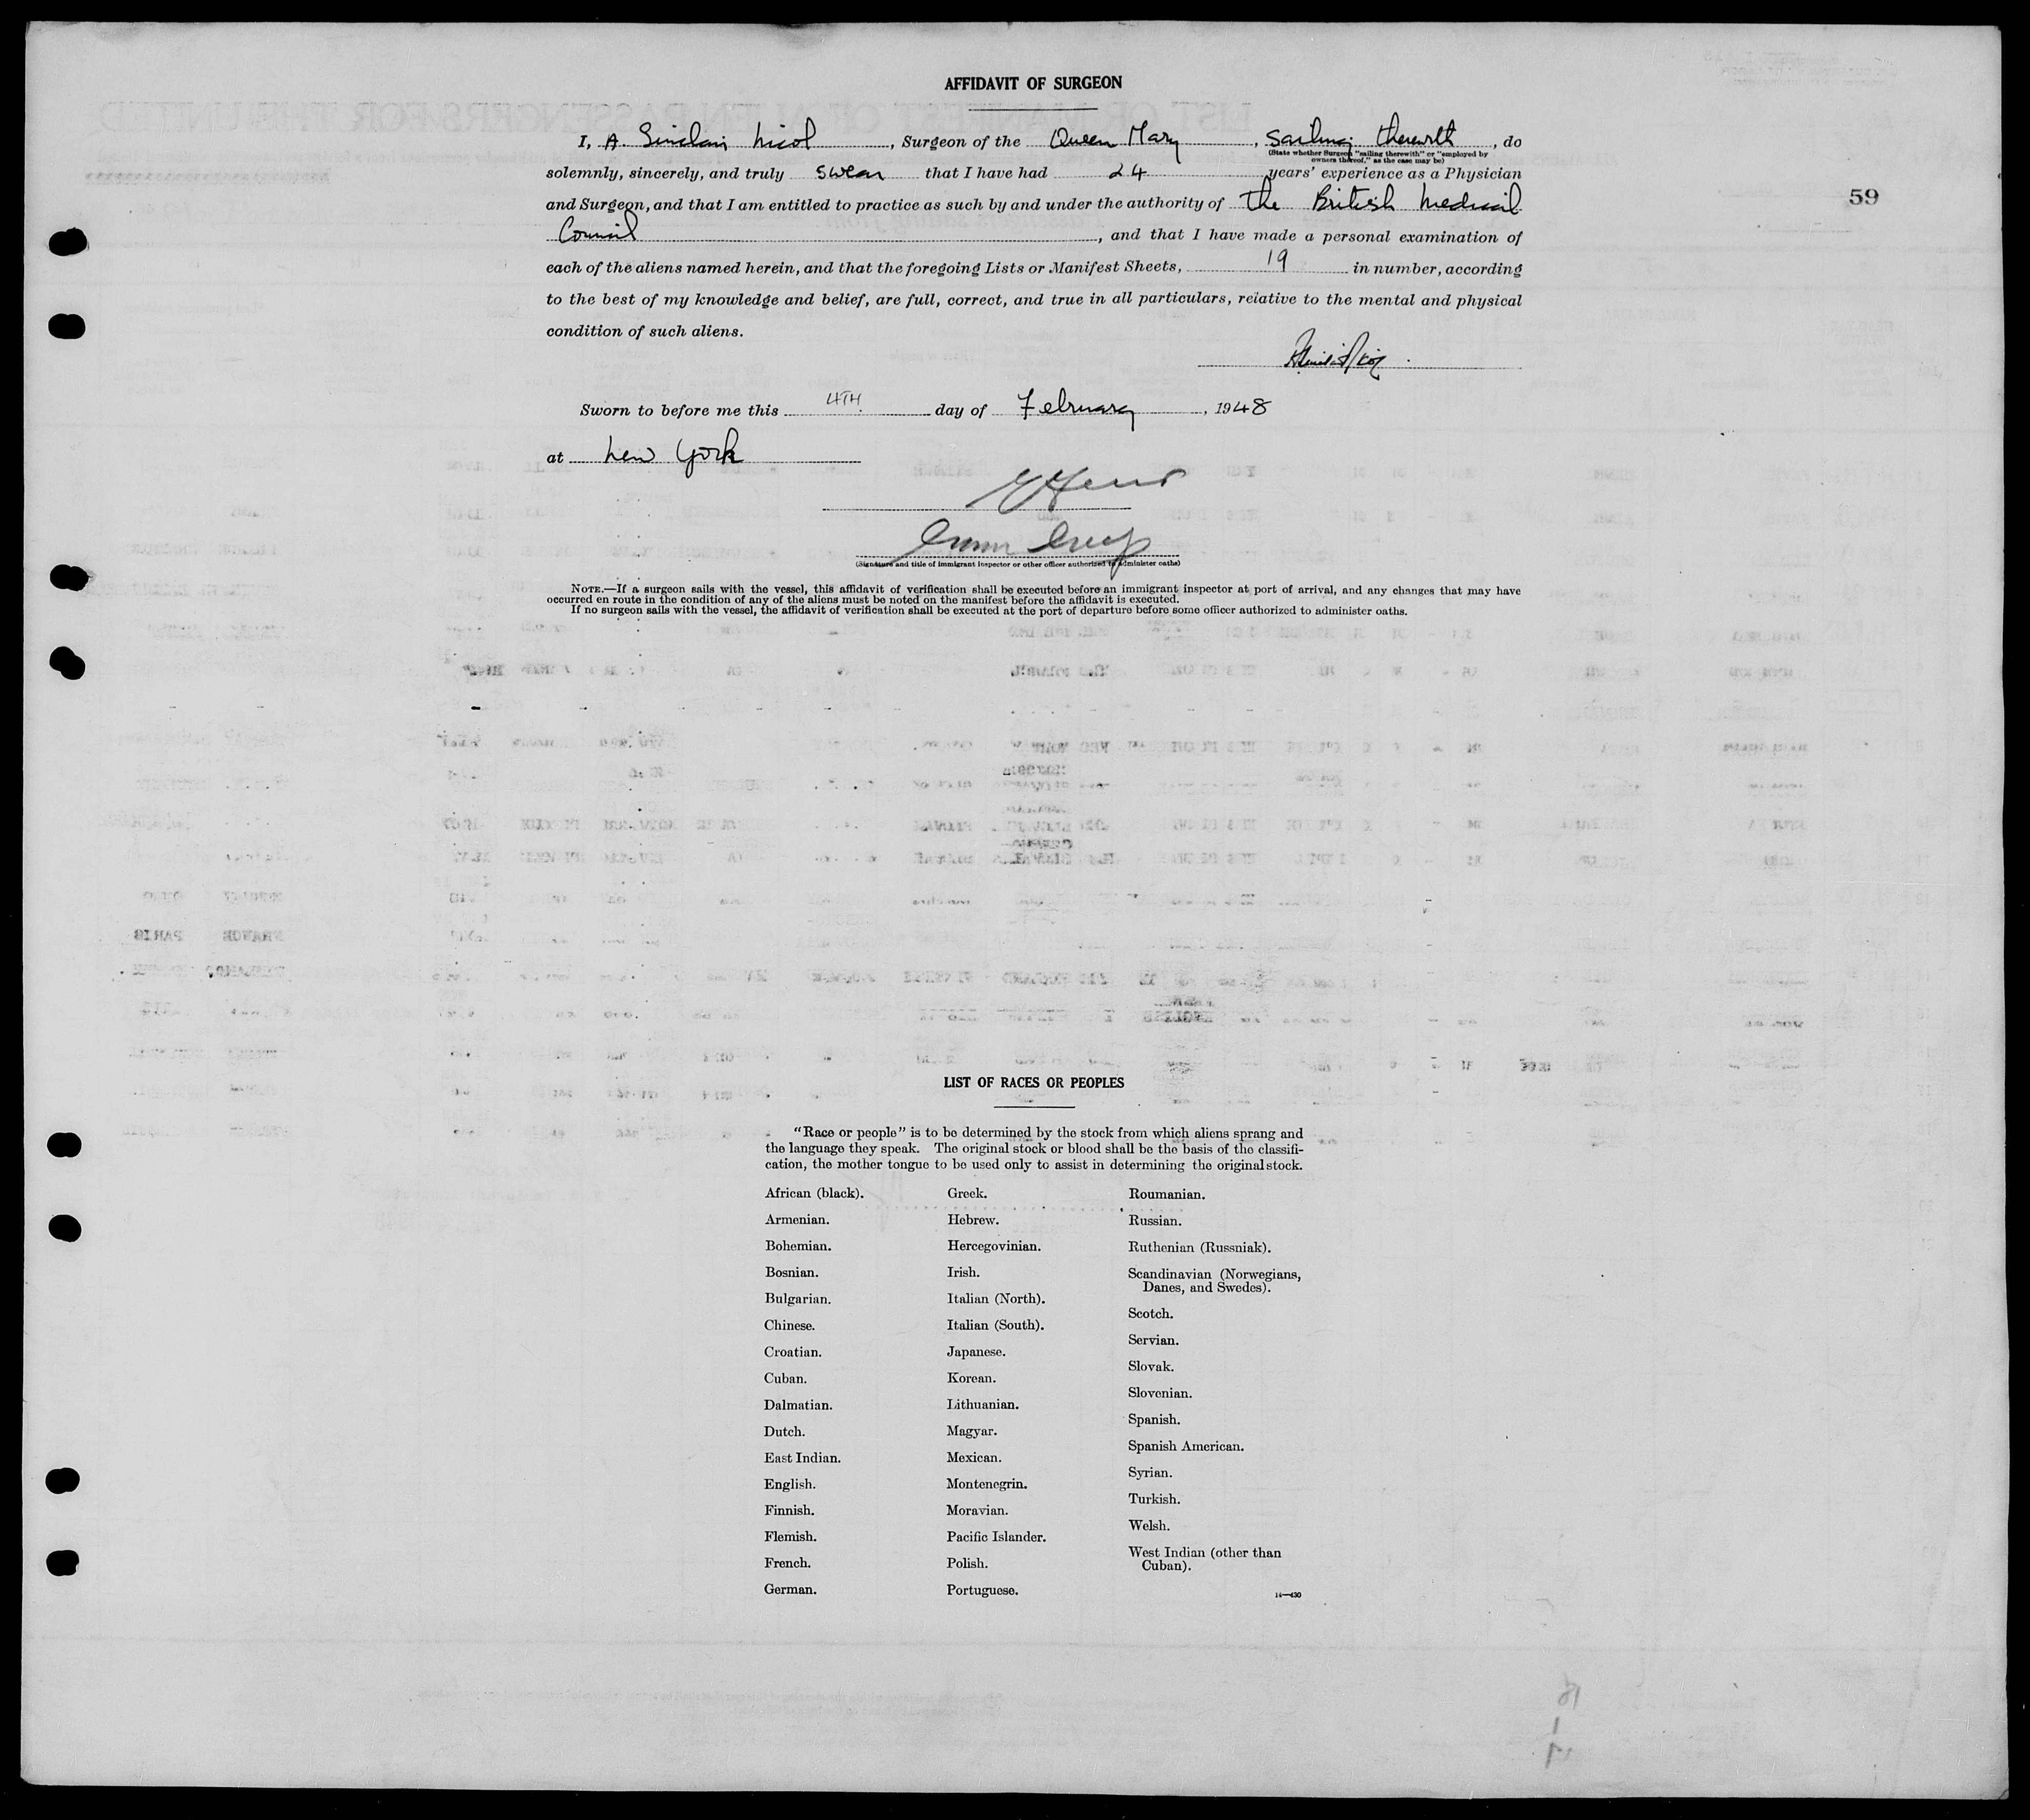 AFFIDAVIT OF SURGEON
59
I, A. Sinclair Nicol, Surgeon of the Queen Mary, sailing therewith, do
(State whether Surgeon "sailing therewith" or "employed by
owners thereof," as the case may be)
solemnly, sincerely, and truly swear that I have had 24 years' experience as a Physician
and Surgeon, and that I am entitled to practice as such by and under the authority of the British Medical
Council, and that I have made a personal examination of
each of the aliens named herein, and that the foregoing Lists or Manifest Sheets, 19 in number, according
to the best of my knowledge and belief, are full, correct, and true in all particulars, relative to the mental and physical
condition of such aliens.
Sworn to before me this 4TH day of February, 1948
at New York
(Signature and title of immigrant inspector or other officer authorized to administer oaths)
NOTE.—If a surgeon sails with the vessel, this affidavit of verification shall be executed before an immigrant inspector at port of arrival, and any changes that may have
occurred en route in the condition of any of the aliens must be noted on the manifest before the affidavit is executed.
If no surgeon sails with the vessel, the affidavit of verification shall be executed at the port of departure before some officer authorized to administer oaths.
LIST OF RACES OR PEOPLES
"Race or people" is to be determined by the stock from which aliens sprang and
the language they speak. The original stock or blood shall be the basis of the classifi-
cation, the mother tongue to be used only to assist in determining the original stock.
African (black).
Armenian.
Bohemian.
Bosnian.
Bulgarian.
Chinese.
Croatian.
Cuban.
Dalmatian.
Dutch.
East Indian.
English.
Finnish.
Flemish.
French.
German.
Greek.
Hebrew.
Hercegovinian.
Irish.
Italian (North).
Italian (South).
Japanese.
Korean.
Lithuanian.
Magyar.
Mexican.
Montenegrin.
Moravian.
Pacific Islander.
Polish.
Portuguese.
Roumanian.
Russian.
Ruthenian (Russniak).
Scandinavian (Norwegians,
Danes, and Swedes).
Scotch.
Servian.
Slovak.
Slovenian.
Spanish.
Spanish American.
Syrian.
Turkish.
Welsh.
West Indian (other than
Cuban).
14—430